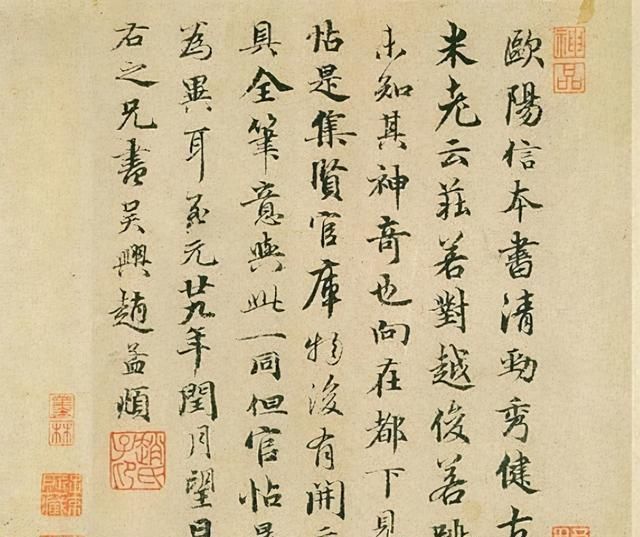 歐陽信本書清勁秀健古
米老云莊若對越俊若跳
未知其神奇也向在都下見
帖是集賢官庫物後有開元
具全筆意與此一同但官帖是
為異耳至元廿九年閏月望日
右之兄書吳興趙孟頫
神品
墨林
趙氏子昂